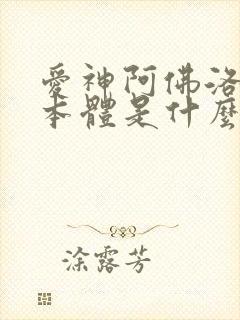 愛神阿佛洛
本體是什麼
涂露芳